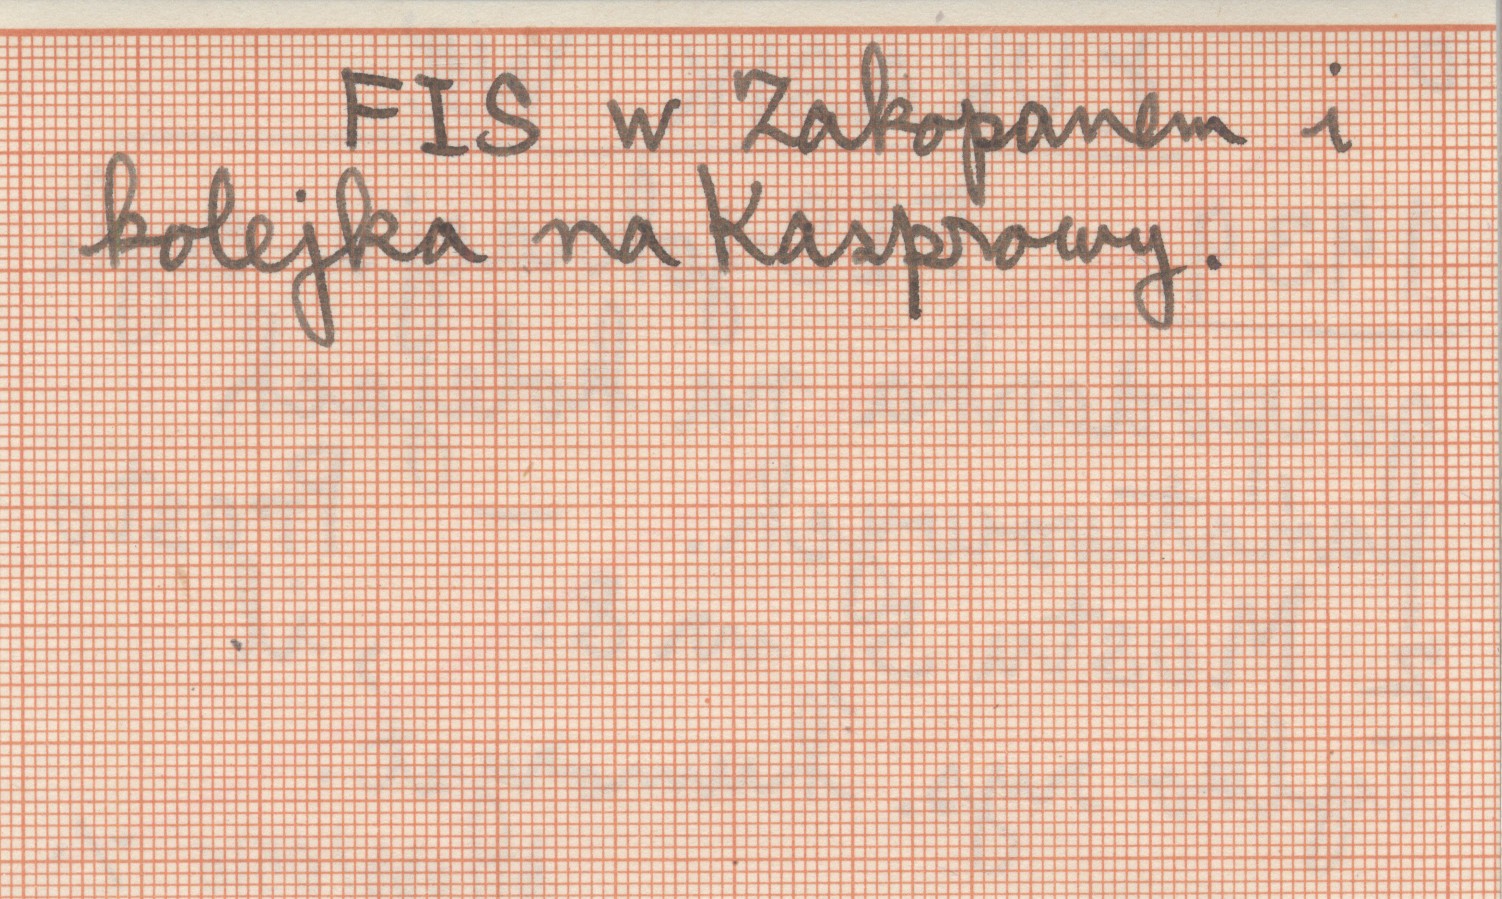 FIS w Zakopanem i
kolejka na Kasprowy.